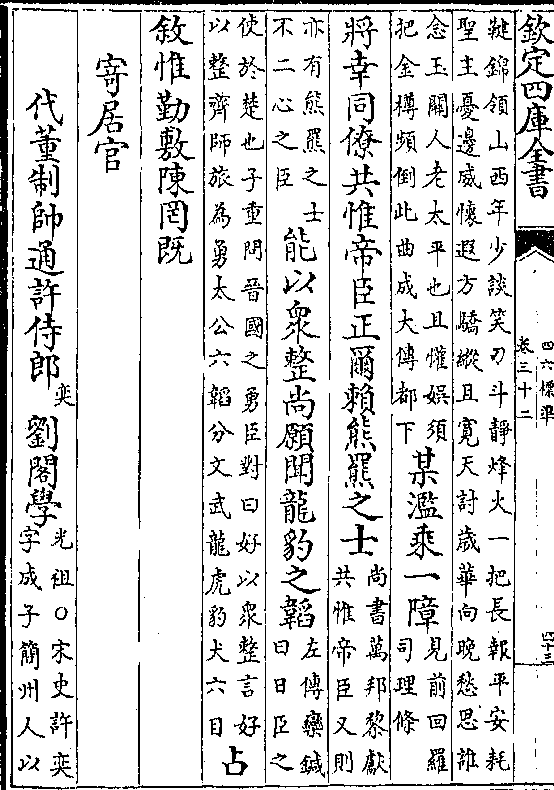 欽定四庫全書
四六標準
卷三十二
四十三
鞬錦領山西年少談笑刀斗靜烽火一把長報平安耗
聖主憂邊威懷遐方驕縱且寛天討歳華向晚愁思誰
念玉關人老太平也且懽娛須
把金樽頻倒此曲成大傳都下
某濫乗一障
見前回羅
司理條
將幸同僚共惟帝臣正爾賴熊羆之士
尚書萬邦黎獻
共惟帝臣又則
亦有熊羆之士
不二心之臣
能以衆整尚願聞龍豹之韜
左傳欒鍼
曰日臣之
使於楚也子重問晉國之勇臣對曰好以衆整言好
以整齊師旅為勇太公六韜分文武龍虎豹犬六日
占
敘惟勤敷陳罔既
寄居官
代董制帥通許侍郎奕 劉閣學
光祖○宋史許奕
字成子簡州人以